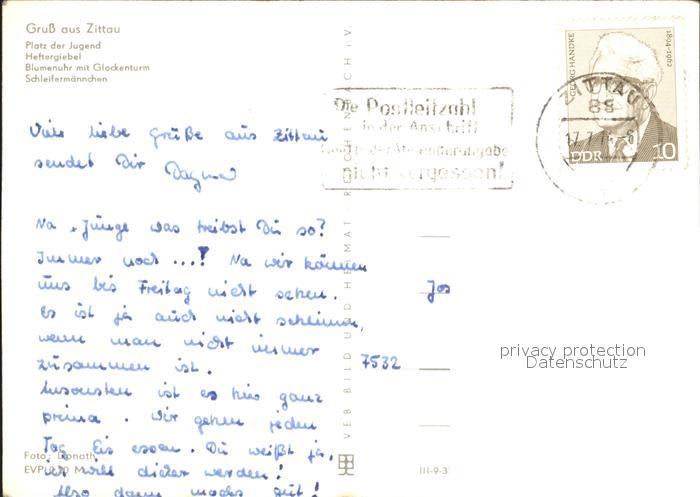 Gruß aus Zittau
Platz der Jugend
Heftergiebel
Blumenuhr mit Glockenturm
Schleifermännchen
Viele liebe Grüße aus Zittau
sendet Dir Dagmar
Na, Junge was treibst Du so?
Immer noch ...? Na wir können
uns bis Freitag nicht sehen.
Es ist ja auch nicht schlimm,
wenn man nicht immer
zusammen ist.
Ansonsten ist es hier ganz
prima. Wir gehen jeden
Tag Eis essen. Du weißt ja,
ich will dicker werden!
Also dann machs gut!
Foto: Donath
EVP 0,20 M
VEB BILD UND HEIMAT REICHENBACH i.V.
Die Postleitzahl
in der Anschrift
und in der Absenderangabe
nicht vergessen!
ZITTAU
88
17.7.
GEORG HANDKE
1894-1962
DDR 10
Jos
7532
privacy protection
Datenschutz
III-9-3